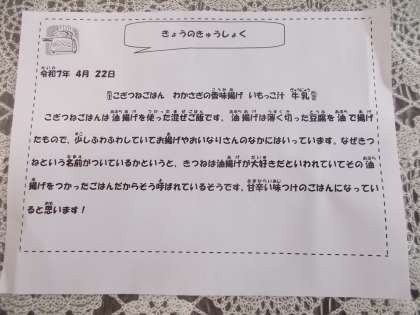 きょうのきゅうしょく
令和7年 4月 22日
こぎつねごはん わかさぎの香味揚げ いもっこ汁 牛乳
こぎつねごはんは油揚げを使った混ぜご飯です。油揚げは薄く切った豆腐を油で揚げ
たもので、少しふわふわしていてお揚げやおいなりさんのなかにはいっています。なぜきつ
ねという名前がついているかというと、きつねは油揚げが大好きだといわれていてその油
揚げをつかったごはんだからそう呼ばれているそうです。甘辛い味つけのごはんになってい
ると思います！